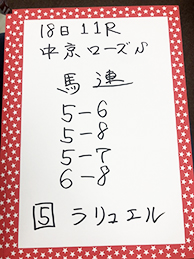 18日11R
中京ローズS
馬連
5-6
5-8
5-7
6-8
5 ラリュエル